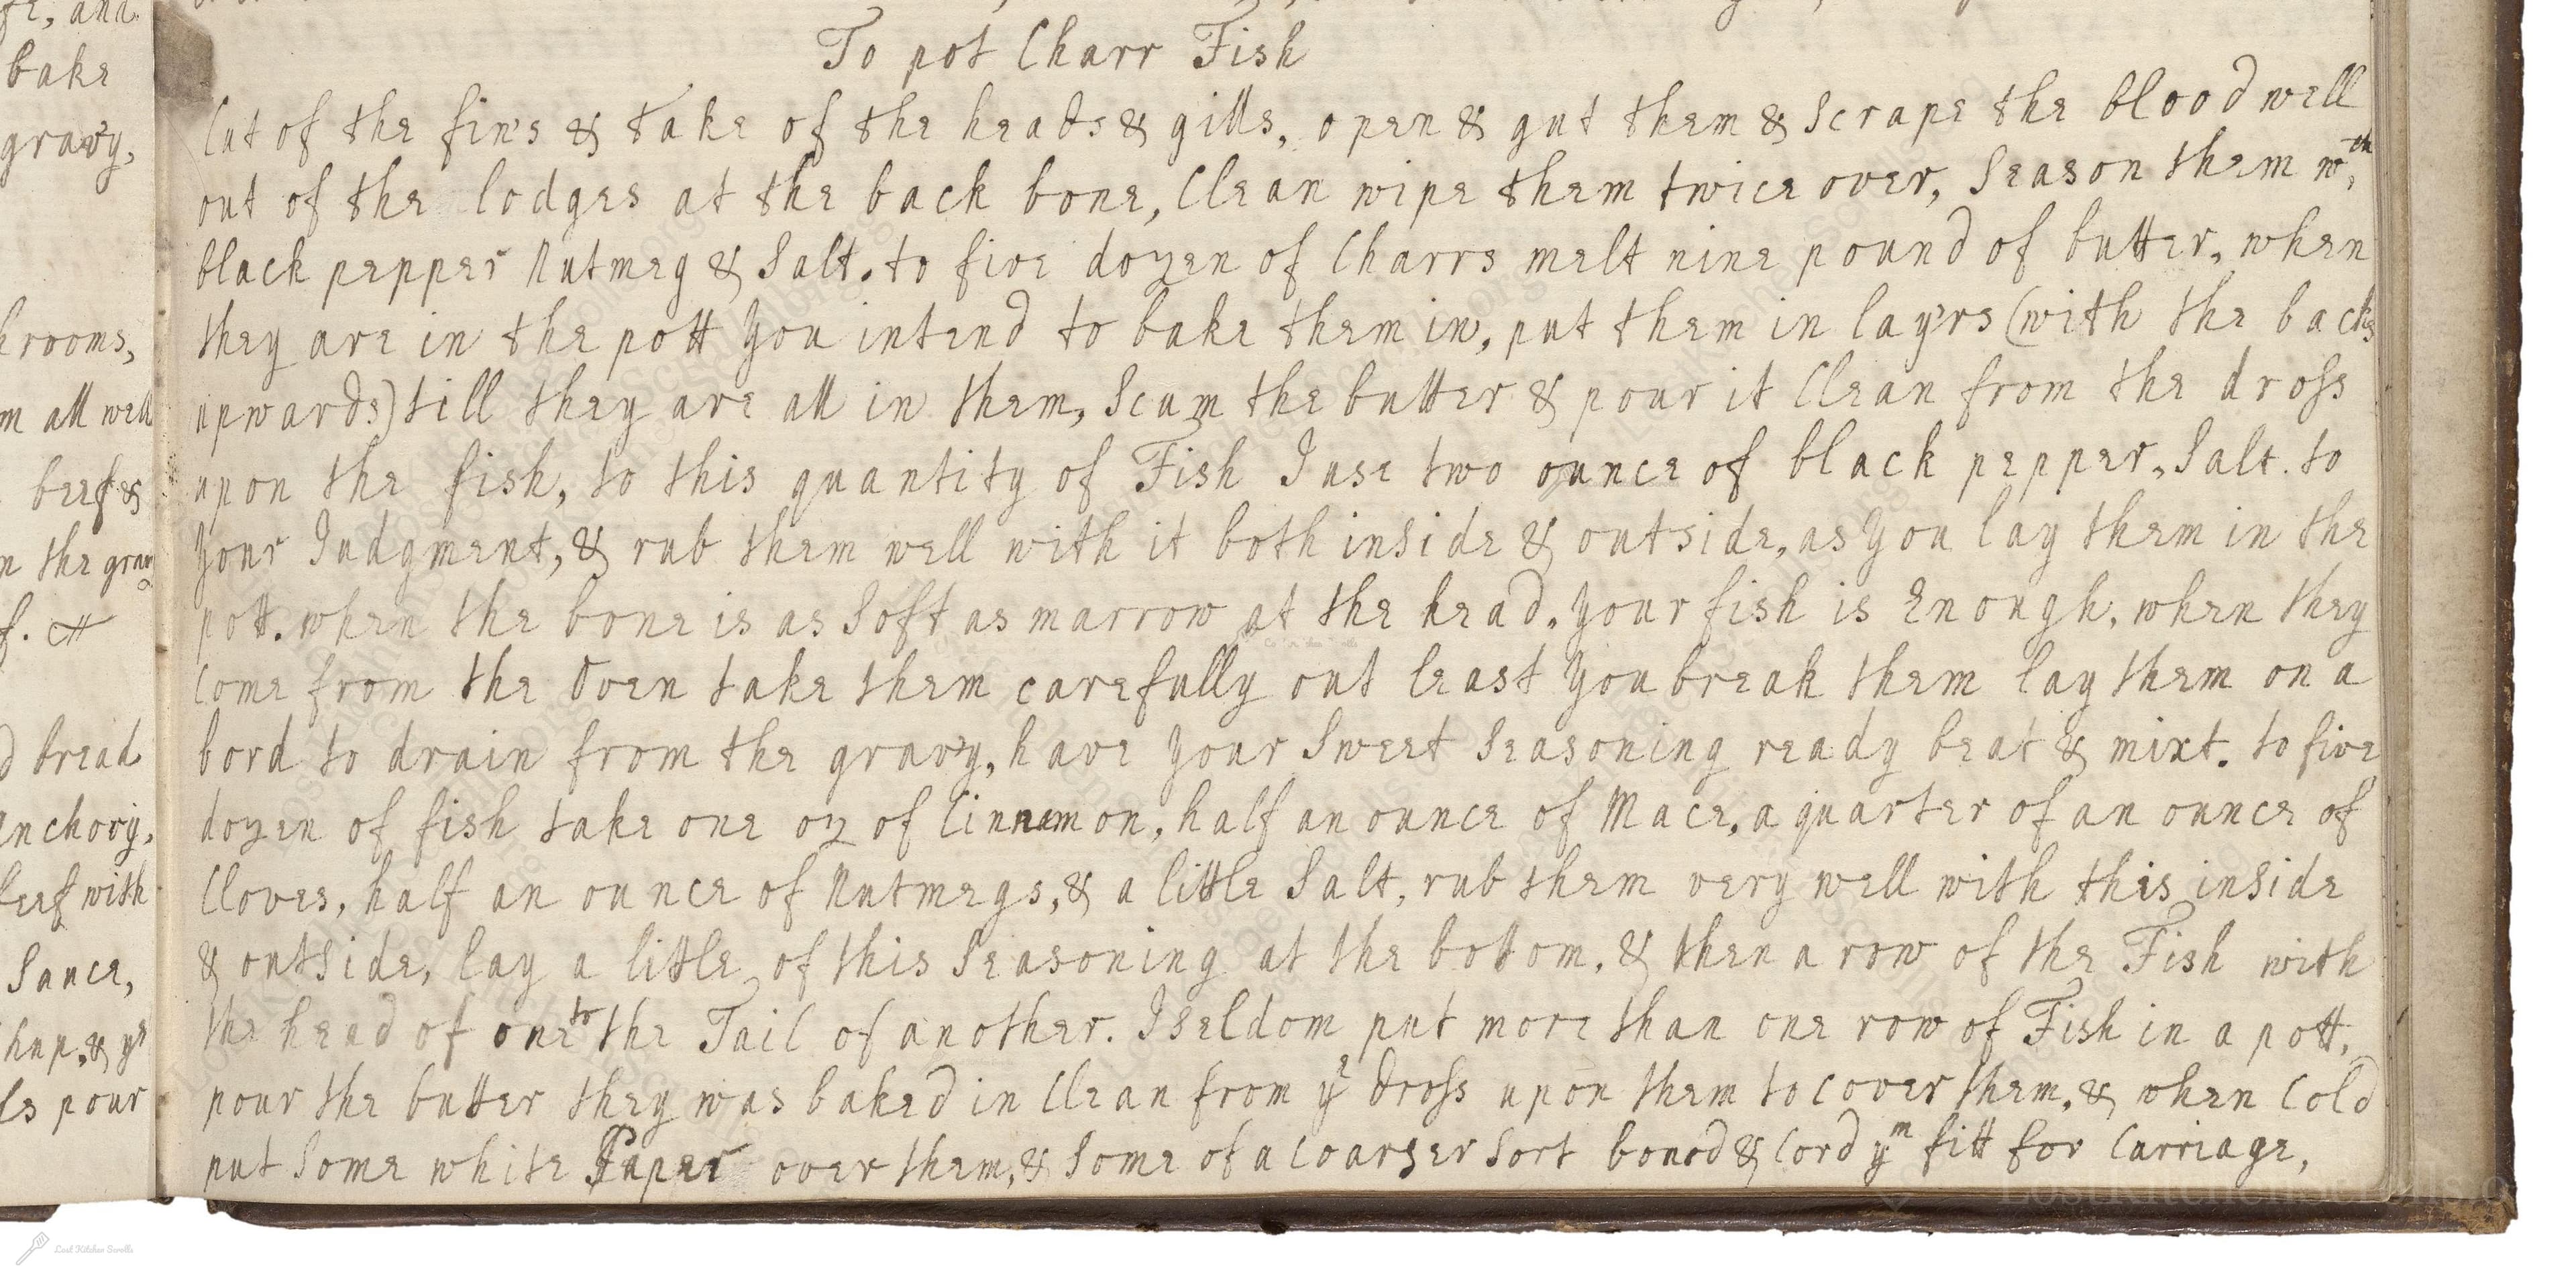 To pot Charr Fish
Cut of the fin's & take of the heads & gills, open & gut them & Scrape the blood well
out of the lodges at the back bone, Clean wipe them twice over, Season them wth,
black pepper Nutmeg & Salt. to five dozen of Charrs melt nine pound of butter, when
they are in the pott you intend to bake them in, put them in lay'rs (with the backs
upwards) till they are all in them, Scum the butter & pour it Clean from the dross
upon the fish, to this quantity of Fish I use two ounce of black pepper, Salt. to
your Judgment, & rub them well with it both inside & outside, as you lay them in the
pott. when the bone is as Soft as marrow at the head. your fish is Enough, when they
Come from the Oven take them carefully out least you break them lay them on a
bord to drain from the gravy, have your Sweet Seasoning ready beat & mixt. to five
dozen of fish take one oz of Cinnemon, half an ounce of Mace, a quarter of an ounce of
Cloves, half an ounce of Nutmegs, & a little Salt, rub them very well with this inside
& outside, lay a little of this Seasoning at the bottom, & then a row of the Fish with
the head of one to the Tail of another. I seldom put more than one row of Fish in a pott,
pour the butter they was baked in Clean from ye dross upon them to Cover them, & when Cold
put Some white Paper over them, & Some of a Coarser Sort bound & Cord ym fitt for Carriage,
fe, and
bake
gravy,
hrooms,
m all well
beef &
n the gravy
f.
d bread
anchovy,
beef with
Sauce,
hup, & ye
ls pour
Lost Kitchen Scrolls